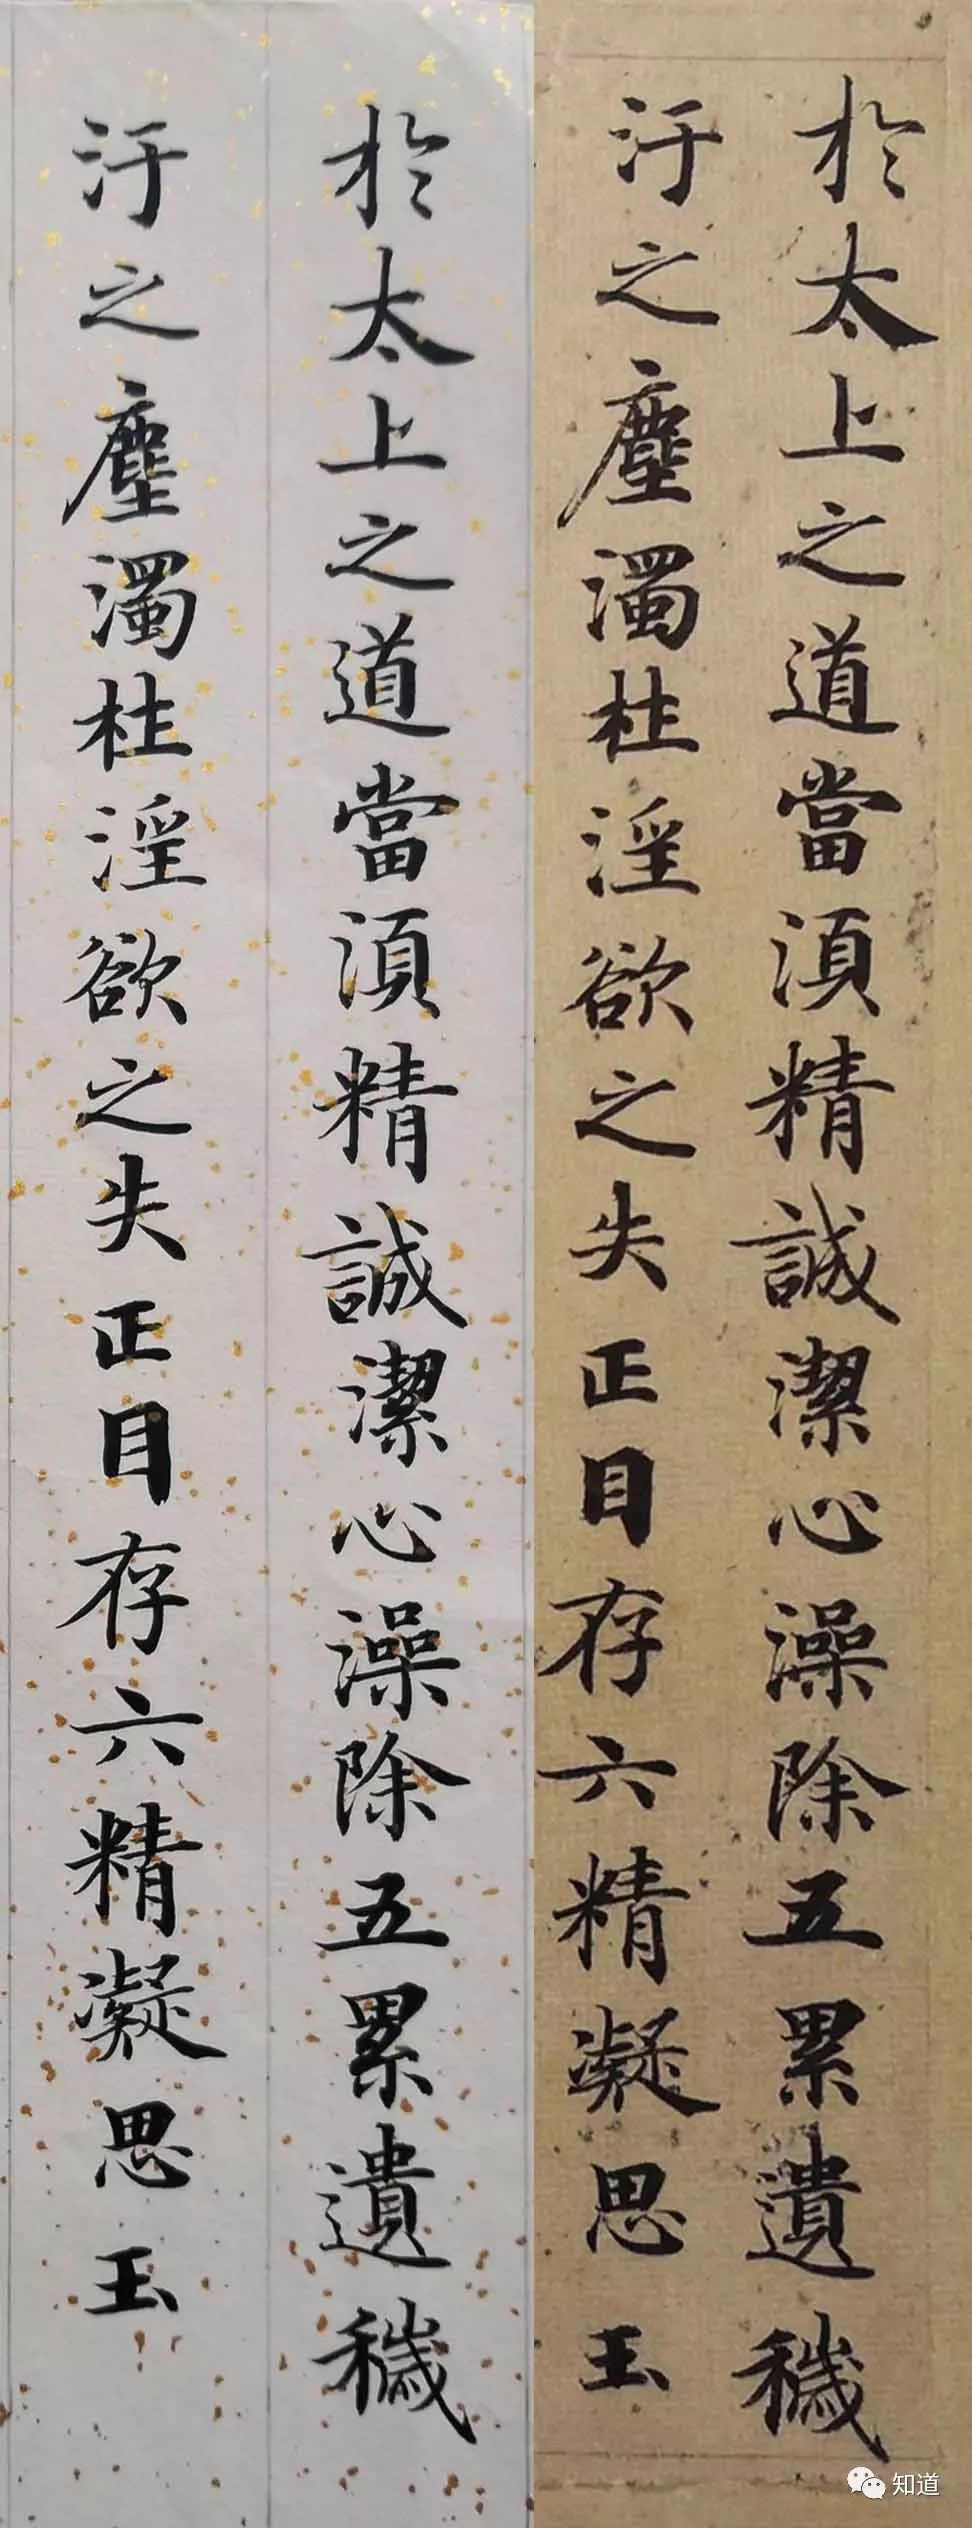 於太上之道當湏精誠潔心澡除五累遺穢
汙之塵濁杜淫欲之失正目存六精凝思玉
於太上之道當湏精誠潔心澡除五累遺穢
汙之塵濁杜淫欲之失正目存六精凝思玉
知道